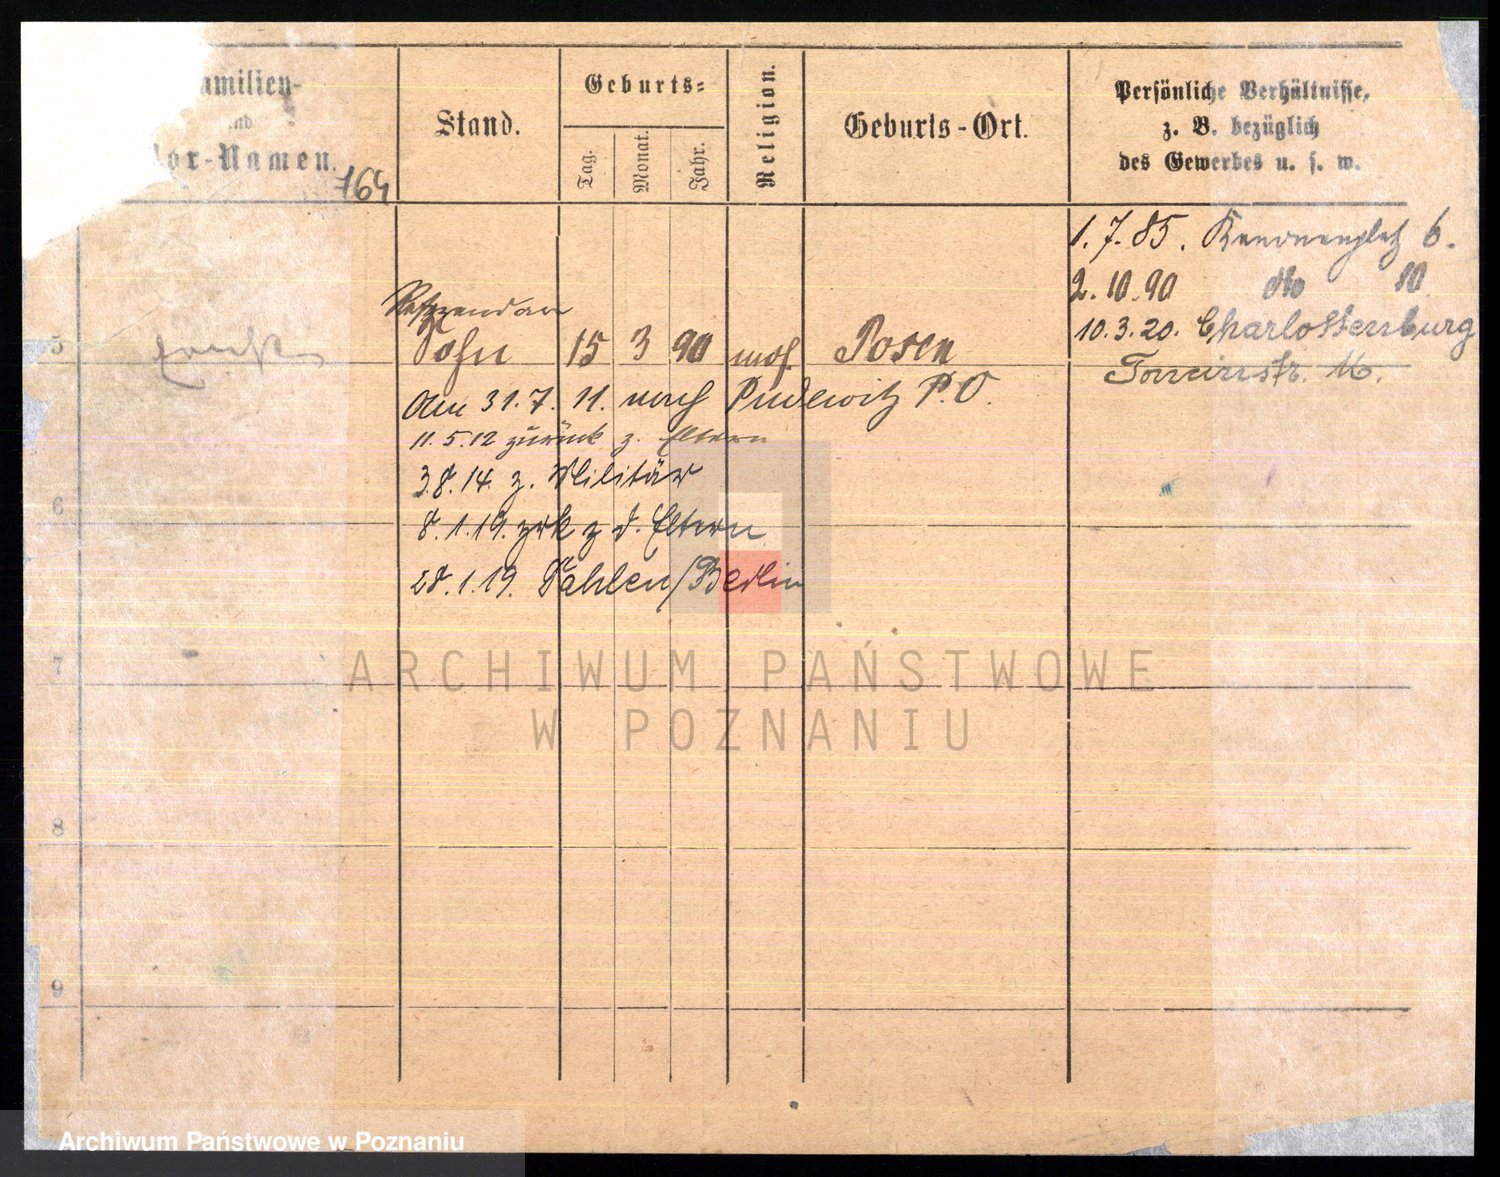 amilien-
nd
or-Namen.
164
Stand.
Geburts-
Tag.
Monat.
Jahr.
Religion.
Geburts-Ort.
Persönliche Verhältnisse,
z. B. bezüglich
des Gewerbes u. s. w.
1.7.85. Kanonenplatz 6.
2.10.90 dto 10
10.3.20. Charlottenburg
16.
Referendar
5 Sohn 15 3 90 mos. Posen
Am 31.7.11. nach Pudewitz P.O.
11.5.12 zurück z. Eltern
3.8.14. z. Militär
6
8.1.19. zrk z d. Eltern
28.1.19. Dahlen/Berlin
7
8
9
ARCHIWUM PAŃSTWOWE
W POZNANIU
Archiwum Państwowe w Poznaniu